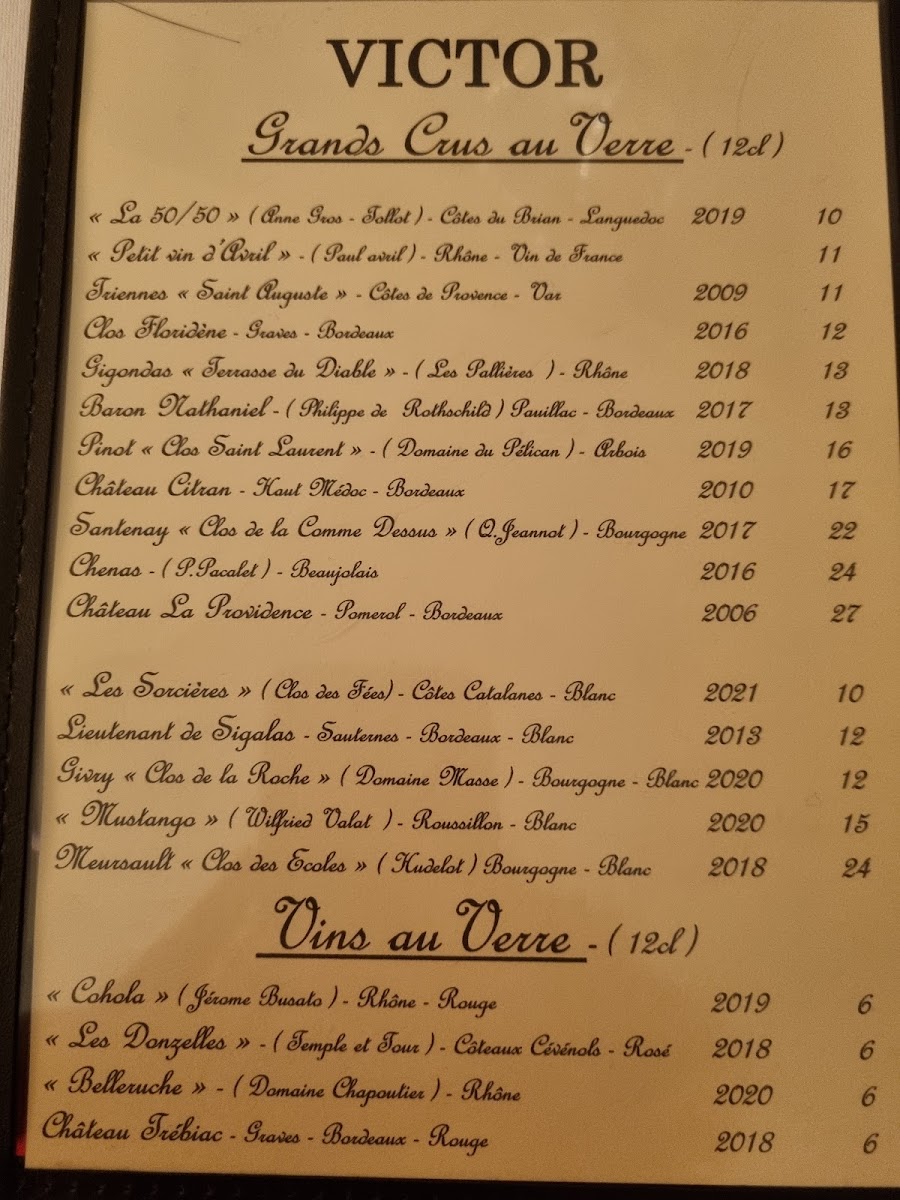 VICTOR
Grands Crus au Verre - ( 12cl )
« La 50/50 » ( Anne Gros - Tollot ) - Côtes du Brian - Languedoc 2019 10
« Petit vin d'Avril » - ( Paul avril ) - Rhône - Vin de France 11
Triennes « Saint Auguste » - Côtes de Provence - Var 2009 11
Clos Floridène - Graves - Bordeaux 2016 12
Gigondas « Terrasse du Diable » - ( Les Pallières ) - Rhône 2018 13
Baron Nathaniel - ( Philippe de Rothschild ) Pauillac - Bordeaux 2017 13
Pinot « Clos Saint Laurent » - ( Domaine du Pélican ) - Arbois 2019 16
Château Citran - Haut Médoc - Bordeaux 2010 17
Santenay « Clos de la Comme Dessus » ( Q.Jeannot ) - Bourgogne 2017 22
Chenas - ( P.Pacalet ) - Beaujolais 2016 24
Château La Providence - Pomerol - Bordeaux 2006 27
« Les Sorcières » ( Clos des Fées) - Côtes Catalanes - Blanc 2021 10
Lieutenant de Sigalas - Sauternes - Bordeaux - Blanc 2013 12
Givry « Clos de la Roche » ( Domaine Masse ) - Bourgogne - Blanc 2020 12
« Mustango » ( Wilfried Valat ) - Roussillon - Blanc 2020 15
Meursault « Clos des Ecoles » ( Hudelot ) Bourgogne - Blanc 2018 24
Vins au Verre - ( 12cl )
« Cohola » ( Jérome Busato ) - Rhône - Rouge 2019 6
« Les Donzelles » - ( Temple et Tour ) - Côteaux Cévénols - Rosé 2018 6
« Belleruche » - ( Domaine Chapoutier ) - Rhône 2020 6
Château Trébiac - Graves - Bordeaux - Rouge 2018 6